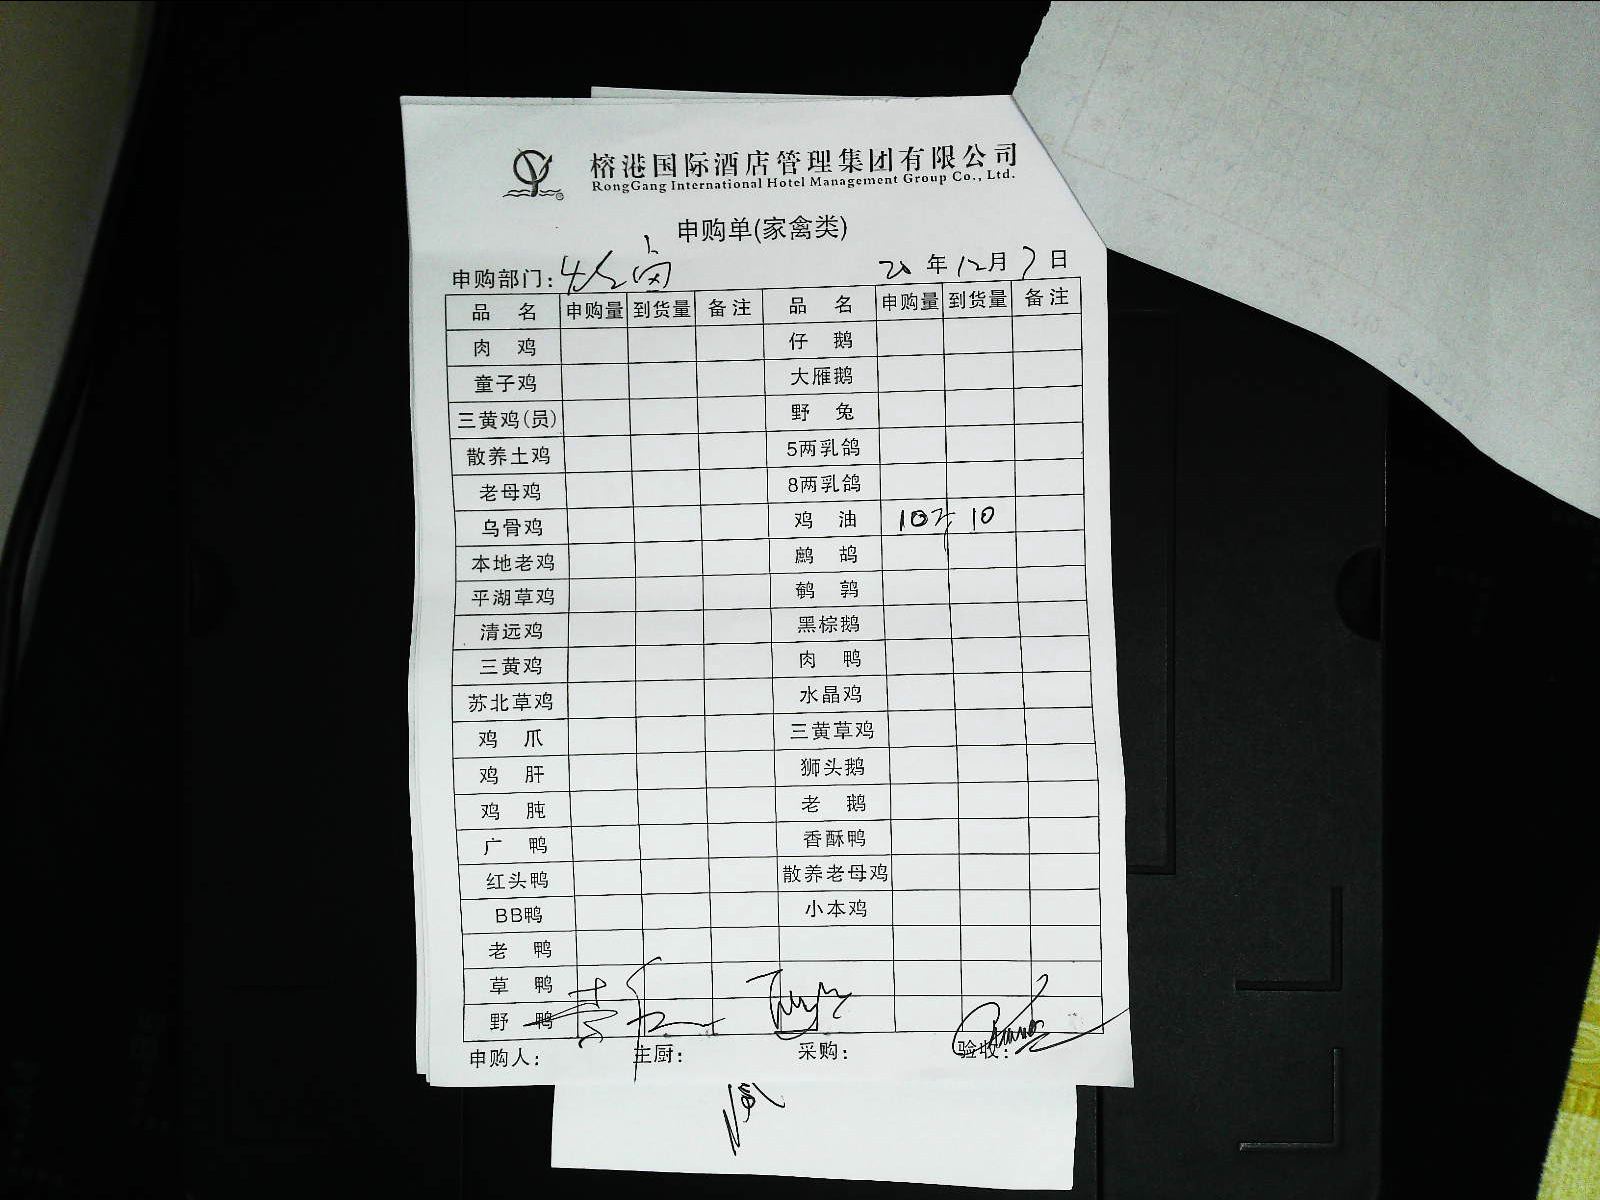 榕港国际酒店管理集团有限公司
RongGang International Hotel Management Group Co., Ltd.
申购单(家禽类)
申购部门: 20 年 12 月 7 日
品 名 申购量 到货量 备注 品 名 申购量 到货量 备注
肉 鸡 仔 鹅
童子鸡 大雁鹅
三黄鸡(员) 野 兔
散养土鸡 5两乳鸽
老母鸡 8两乳鸽
乌骨鸡 鸡 油 10斤 10
本地老鸡 鹧 鸪
平湖草鸡 鹌 鹑
清远鸡 黑棕鹅
三黄鸡 肉 鸭
苏北草鸡 水晶鸡
鸡 爪 三黄草鸡
鸡 肝 狮头鹅
鸡 肫 老 鹅
广 鸭 香酥鸭
红头鸭 散养老母鸡
BB鸭 小本鸡
老 鸭
草 鸭
野 鸭
申购人: 主厨: 采购: 验收: